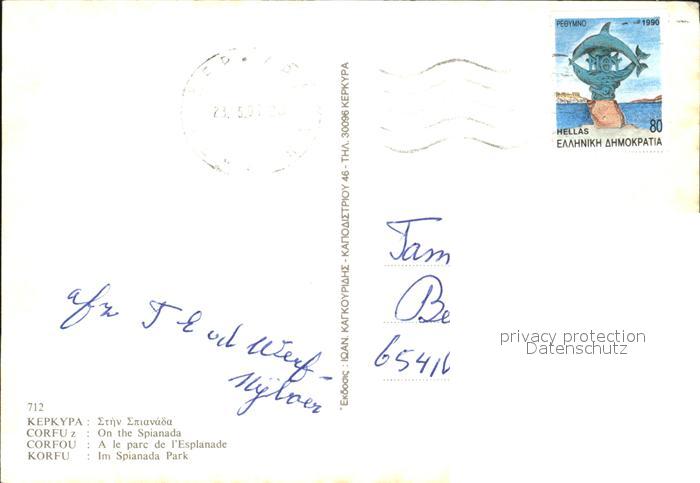 ΡΕΘΥΜΝΟ 1990
HELLAS 80
ΕΛΛΗΝΙΚΗ ΔΗΜΟΚΡΑΤΙΑ
Ἔκδοσις : ΙΩΑΝ. ΚΑΓΚΟΥΡΙΔΗΣ - ΚΑΠΟΔΙΣΤΡΙΟΥ 46 - ΤΗΛ. 30096 ΚΕΡΚΥΡΑ
Tam
Be
privacy protection
Datenschutz
afz T E vd Werf-
712
ΚΕΡΚΥΡΑ : Στὴν Σπιανάδα
CORFU z : On the Spianada
CORFOU : A le parc de l'Esplanade
KORFU : Im Spianada Park